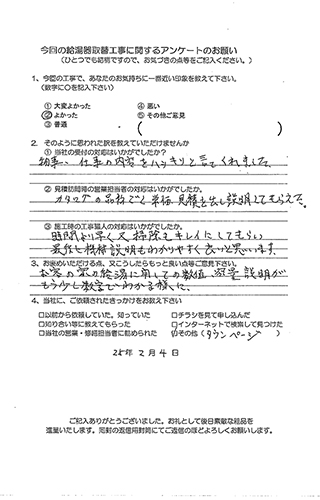 今回の給湯器取替工事に関するアンケートのお願い
（ひとつでも結構ですので、お気づきの点等をご記入ください。）
1、今回の工事で、あなたのお気持ちに一番近い印象を教えて下さい。
（数字に○を記入下さい）
① 大変よかった　④ 悪い
② よかった　⑤ その他ご意見
③ 普通　（　　　）
2．そのように思われた訳を教えていただけませんか
① 当社の受付の対応はいかがでしたか？
仕事の内容をハッキリと言てくれました
② 見積訪問等の営業担当者の対応はいかがでしたか。
カタログの品物でく 単価 見積を出し説明してもらえた。
③ 施工時の工事職人の対応はいかがでしたか。
時間より早く又掃除もキレイにしてもらい
機種説明もわかりやすく良いと思います。
3、お奨めいただける点、又こうしたらもっと良い点等ご意見下さい。
の給湯に用しての数値 容量 説明が
もう少し数字でわかる様に。
4、当社に、ご依頼されたきっかけをお教え下さい
□以前から依頼していた。知っていた　□チラシを見て申し込んだ
□知り合い等に教えてもらった　□インターネットで検索して見つけた
□当社の営業・修理担当者に勧められた　☑その他（タウンページ）
25年2月4日
ご記入ありがとうございました。お礼として後日素敵な粗品を
進呈いたします。同封の返信用封筒にてご返信のほどよろしくお願いします。